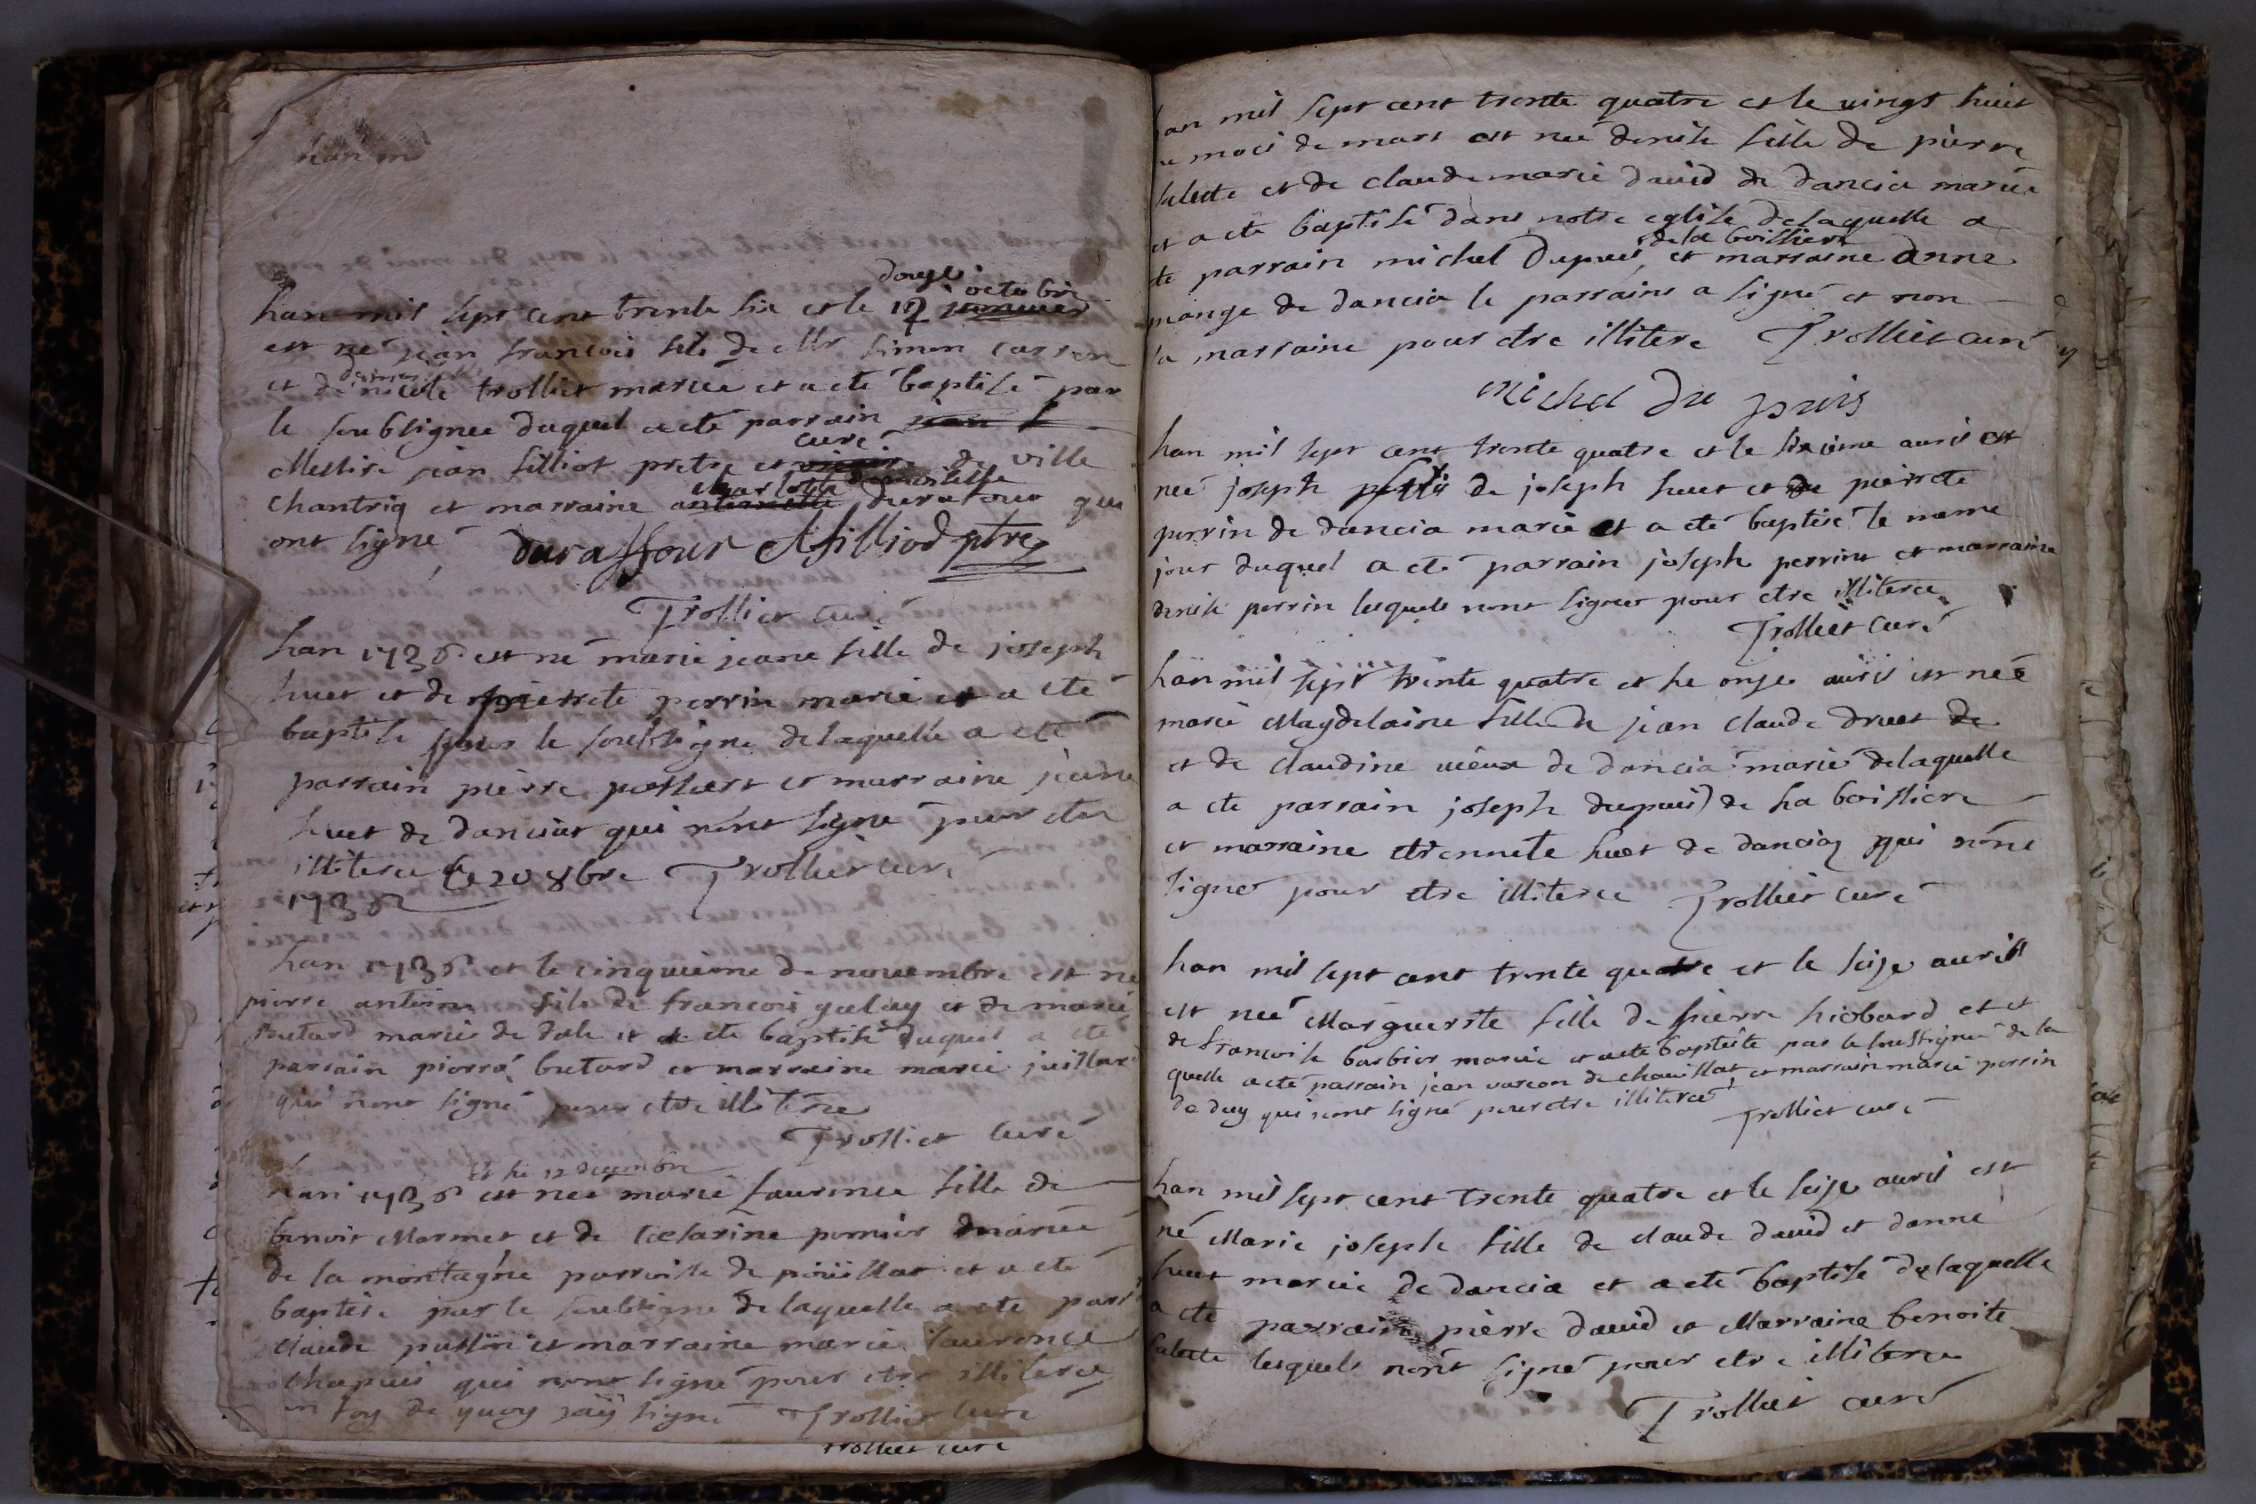 han m
han mil sept cent trente six et le 12 douze octobre
est né jean francois fils de Mr simon carron
et de nicole trolliet mariée et a eté baptisé par
le soubsignee duquel a eté parrain
Messire jean filliot pretre et curé de ville
chantria et marraine charlotte demoiselle duratour qui
ont signé
durassour filliod ptre
Trolliet curé
han 1736 est né marie jeane fille de joseph
huet et de pierrete perrin marié et a eté
baptisé par le soubsigne delaquelle a eté
parrain pierre et marraine jeane
huet de danciat qui nont signé pour etre
illiterée le 20 8bre Trolliet curé
1736
han 1736 et le cinquieme de novembre est né
pierre antoine fils de francois et de marie
butard mariés de dole et a eté baptisé duquel a eté
parrain pierre butard et marraine marie juillard
qui nont signé pour etre illiterée
Trolliet curé
et le 12 decembre
han 1736 est nee marie laurence fille de
benoit Marmet et de mariée
de la montagne parroisse de poüillat et a eté
baptisé par le soubsigne delaquelle a eté parr
claude et marraine marie laurence
chapuis qui nont signé pour etre illiterée
en foy de quoy jaÿ signé Trolliet curé
trolliet curé
han mil sept cent trente quatre et le vingt huit
mois de mars est neé denise fille de pierre
et de claude marie david de dancia mariée
et a eté baptisé dans notre eglise delaquelle a
de la boissiere
te parrain michel Dupuis et marraine anne
monge de dancia le parrains a signé et non
la marraine pour etre illitere Trolliet curé
michel du puis
han mil sept cent trente quatre et le sixieme avril est
neé joseph fils de joseph huet et de pierrete
perrin de dancia marié et a eté baptisé le meme
jour duquel a eté parrain joseph perrin et marraine
denise perrin lesquels nont signés pour etre illiterée
Trolliet curé
han mil sept trente quatre et le onze avril est neé
marie Magdelaine fille de jean claude druet de
et de claudine vieux de dancia marié delaquelle
a eté parrain joseph dupuis de la boissiere
et marraine etiennete huet de dancia qui nont
signé pour etre illiterée Trolliet curé
han mil sept cent trente quatre et le seize avrill
est neé Marguerite fille de pierre hiobard et et
de francoise barbier mariée et a eté baptisée par le soussigné de la
quelle a eté parrain jean varcon de chavillat et marrain marie perrin
de duy qui nont signé pour etre illiterée
Trolliet curé
han mil sept cent trente quatre et le seize avril est
né Marie joseph fille de claude david et danne
huet mariée de dancia et a eté baptisé delaquelle
a eté parrain pierre david et Marraine benoite
lesquels nont signé pour etre illiterée
Trolliet curé